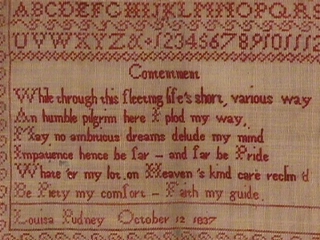 ABCDEFGHIJKLMNOPQRS
UVWXYZ& 123456789101112
Contentment
While through this fleeting life's short, various way
An humble pilgrim here I plod my way,
May no ambitious dreams delude my mind
Impatience hence be far - and far be Pride
Whate'er my lot, on Heaven's kind care reclin'd
Be Piety my comfort - Faith my guide
Louisa Pudney October 12 1837